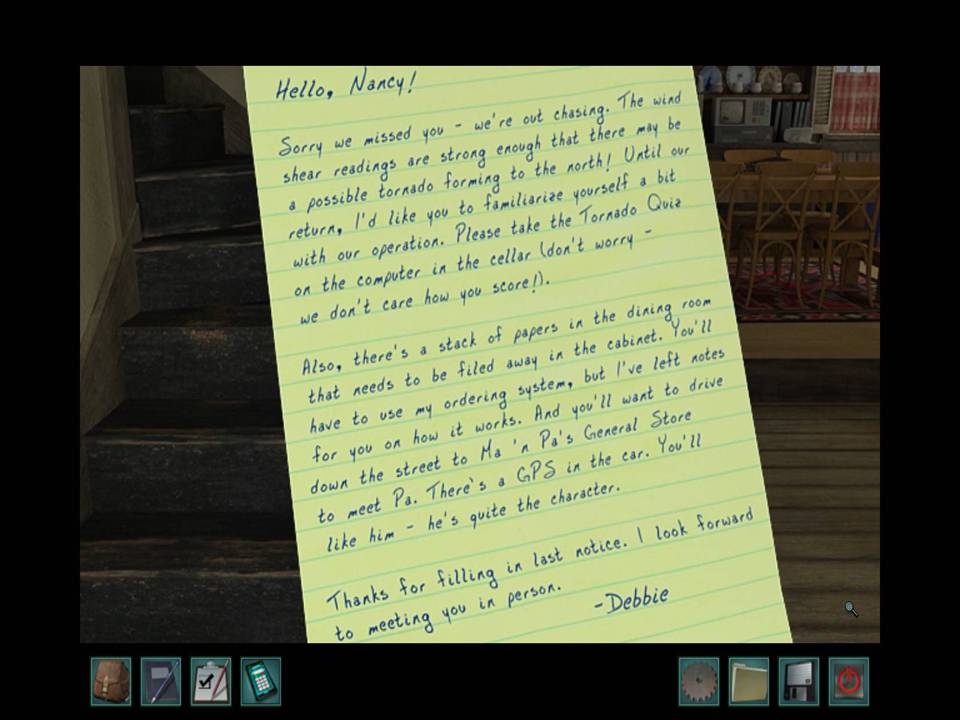 Hello, Nancy!
Sorry we missed you - we're out chasing. The wind
shear readings are strong enough that there may be
a possible tornado forming to the north! Until our
return, I'd like you to familiarize yourself a bit
with our operation. Please take the Tornado Quiz
on the computer in the cellar (don't worry -
we don't care how you score!).
Also, there's a stack of papers in the dining room
that needs to be filed away in the cabinet. You'll
have to use my ordering system, but I've left notes
for you on how it works. And you'll want to drive
down the street to Ma 'n Pa's General Store
to meet Pa. There's a GPS in the car. You'll
like him - he's quite the character.
Thanks for filling in last notice. I look forward
to meeting you in person.
-Debbie